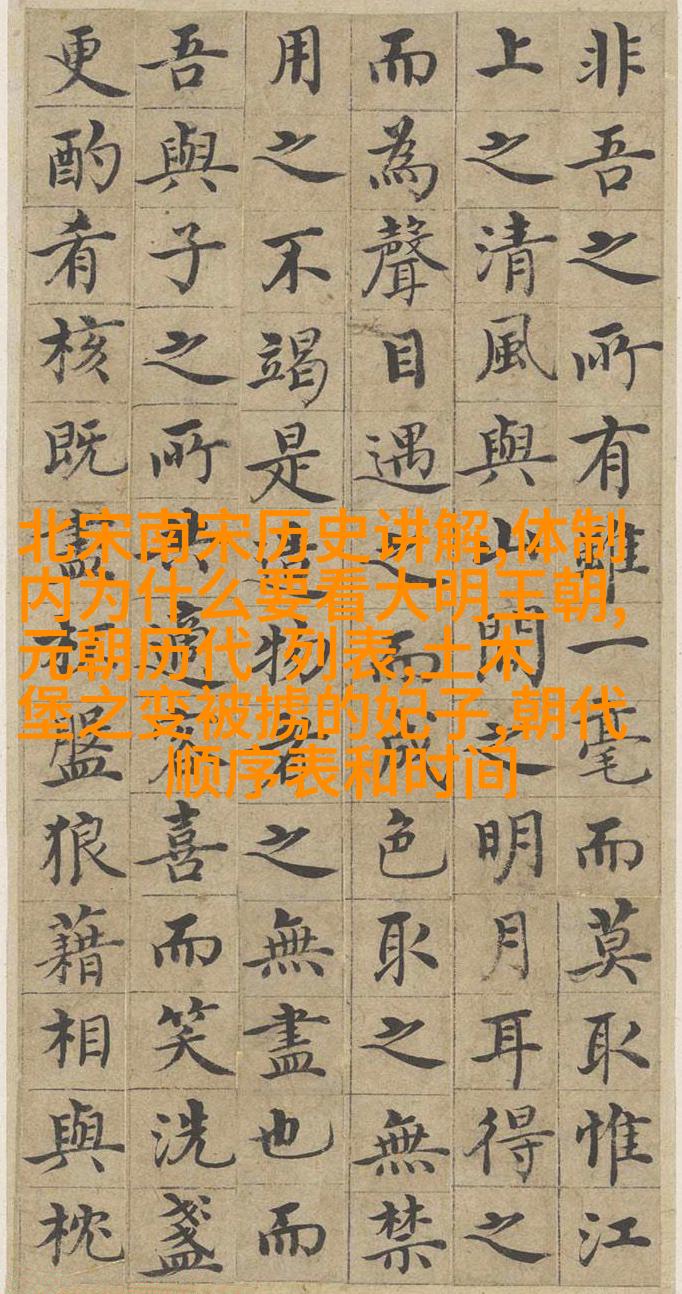 非吾之所有雖一毫而莫取惟江
上之清風與山間之明月耳得之
而為聲目遇之而成色取之無禁
用之不竭是造物者之無盡也而
吾與子之所共適客喜而笑洗盞
更酌肴核既盡杯盤狼藉相與枕
北宋南宋历史讲解,体制
内为什么要看大明王朝,
元朝历代 列表,土木
堡之变被掳的妃子,朝代
顺序表和时间